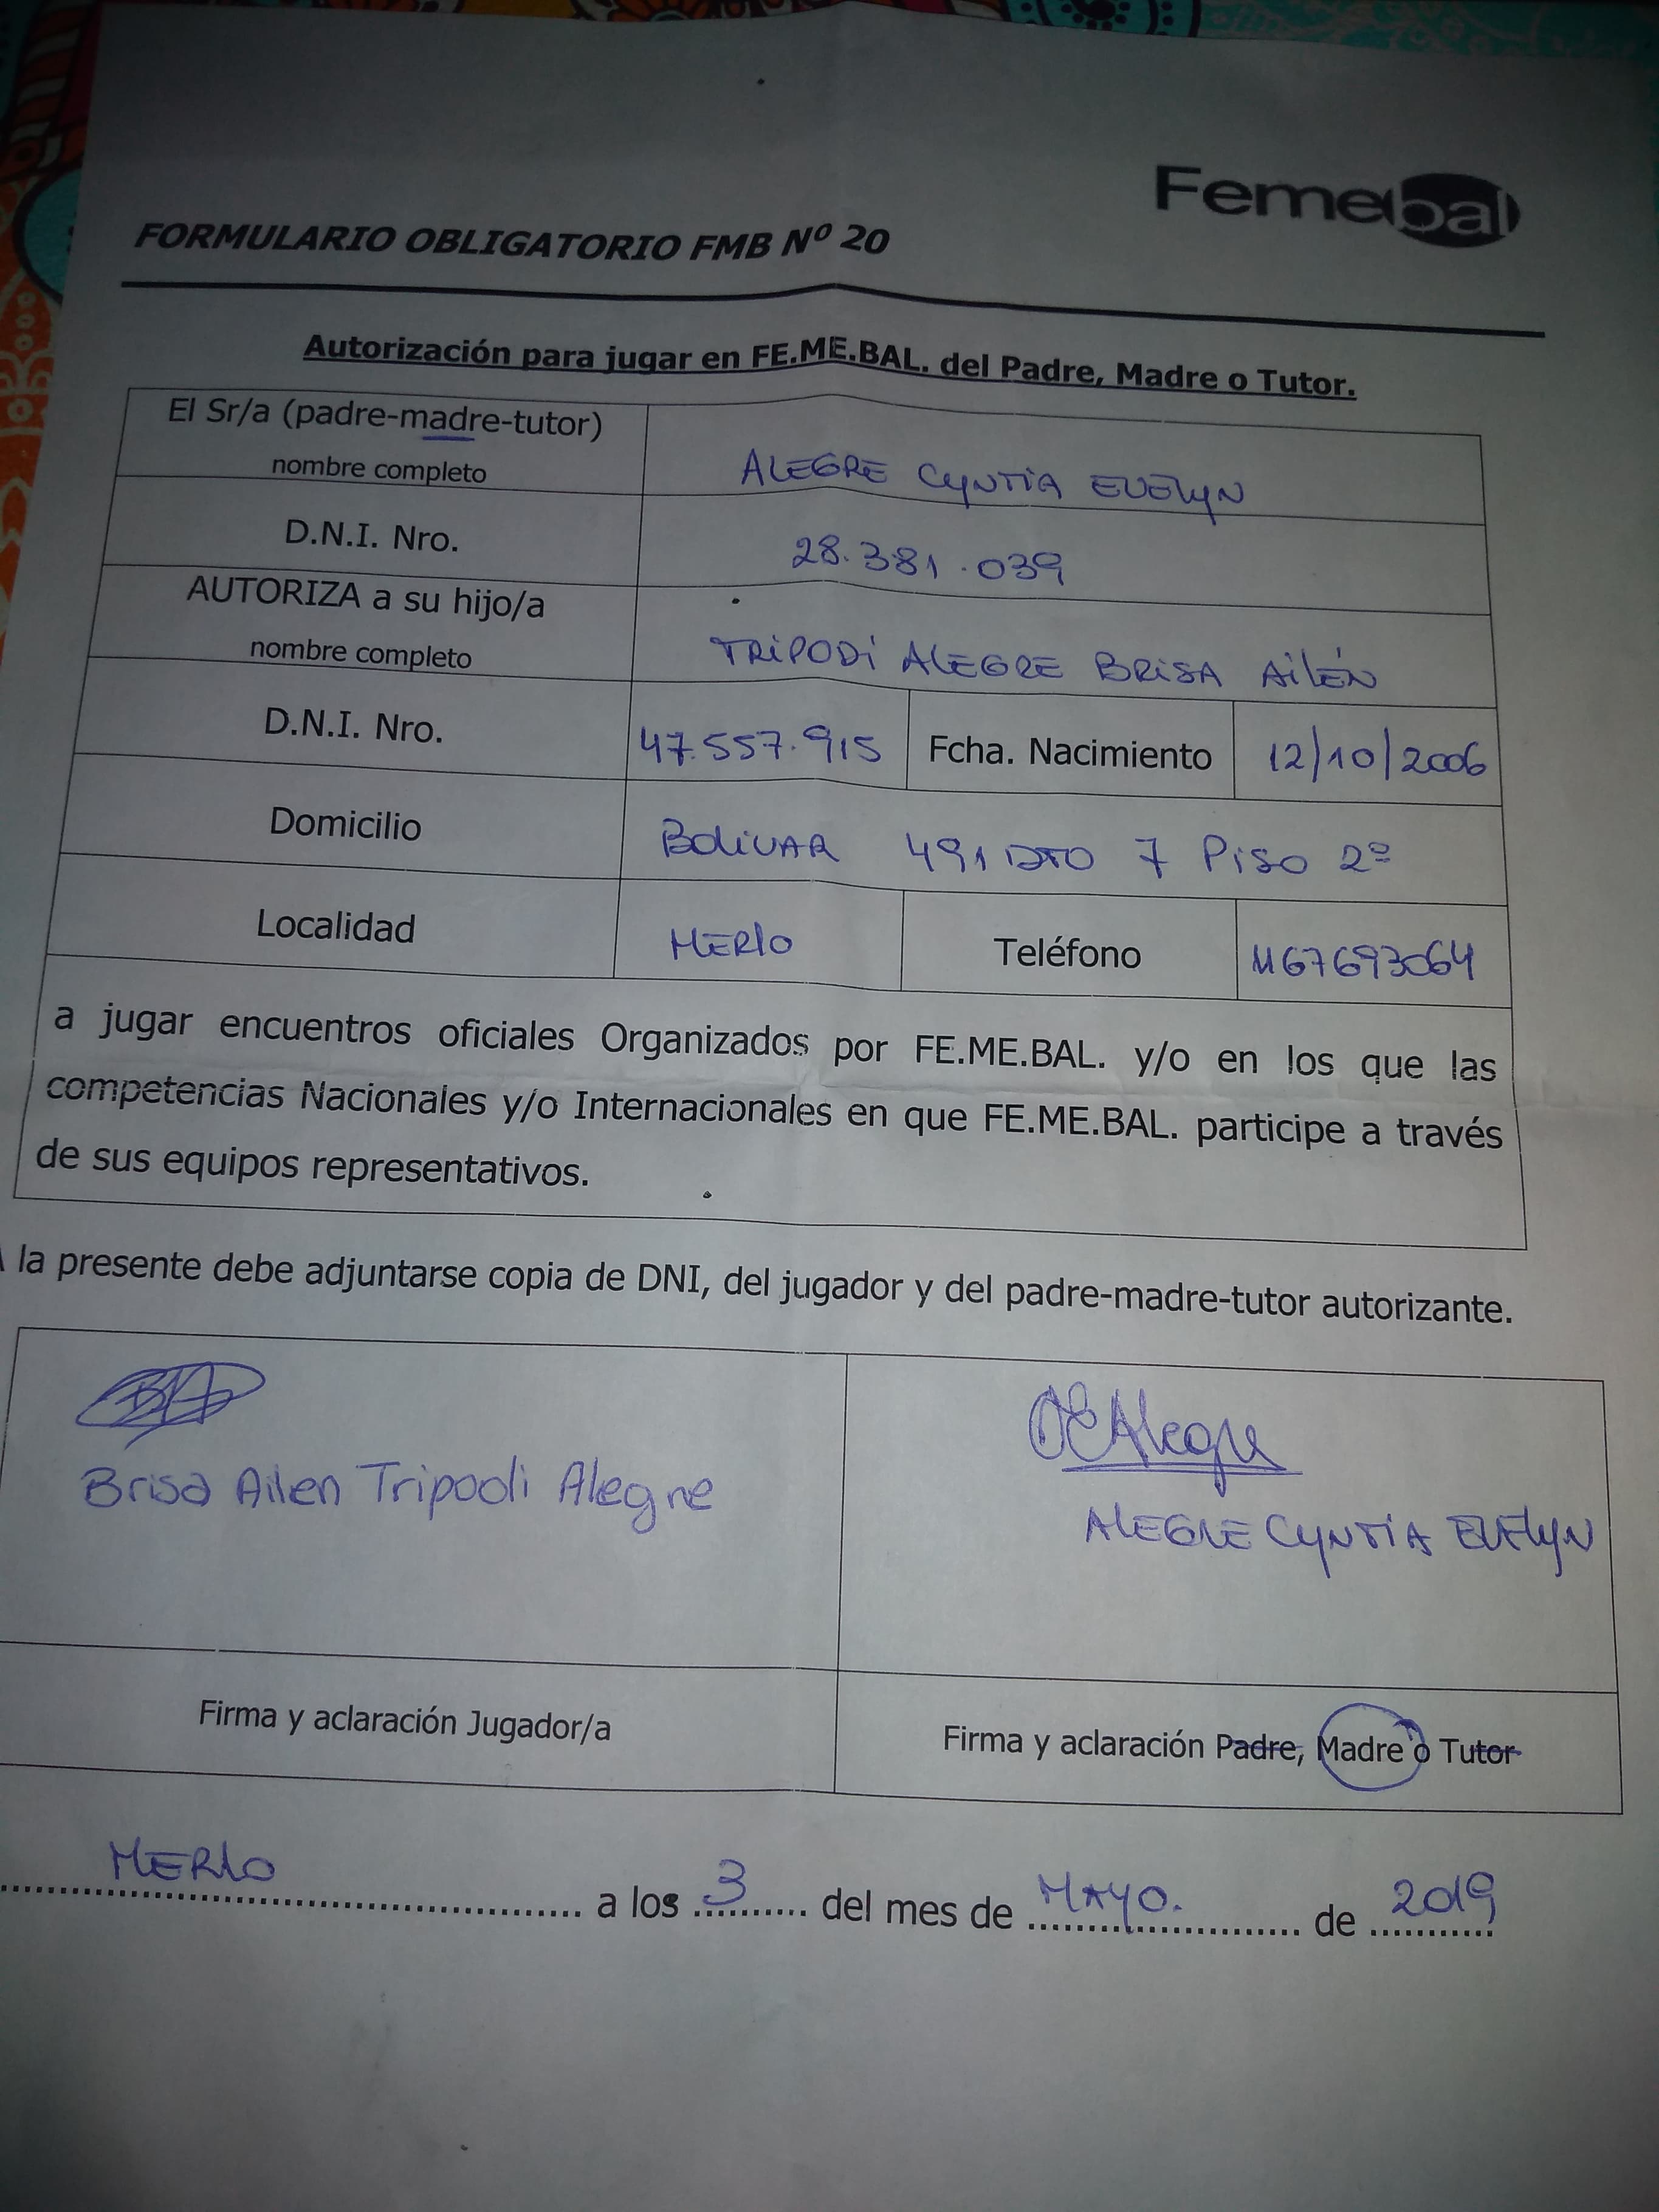 Femebal
FORMULARIO OBLIGATORIO FMB Nº 20
Autorización para jugar en FE.ME.BAL. del Padre, Madre o Tutor.
El Sr/a (padre-madre-tutor)
nombre completo
ALEGRE CYNTIA EVELYN
D.N.I. Nro.
28.381.039
AUTORIZA a su hijo/a
nombre completo
TRIPODI ALEGRE BRISA AILÉN
D.N.I. Nro.
47.557.915
Fcha. Nacimiento
12/10/2006
Domicilio
BOLIVAR 491 DTO 7 PISO 2º
Localidad
MERLO
Teléfono
1167693064
a jugar encuentros oficiales Organizados por FE.ME.BAL. y/o en los que las
competencias Nacionales y/o Internacionales en que FE.ME.BAL. participe a través
de sus equipos representativos.
A la presente debe adjuntarse copia de DNI, del jugador y del padre-madre-tutor autorizante.
Brisa Ailen Tripodi Alegre
CEAlegre
ALEGRE CYNTIA EVELYN
Firma y aclaración Jugador/a
Firma y aclaración Padre, Madre o Tutor
MERLO a los 3 del mes de MAYO. de 2019